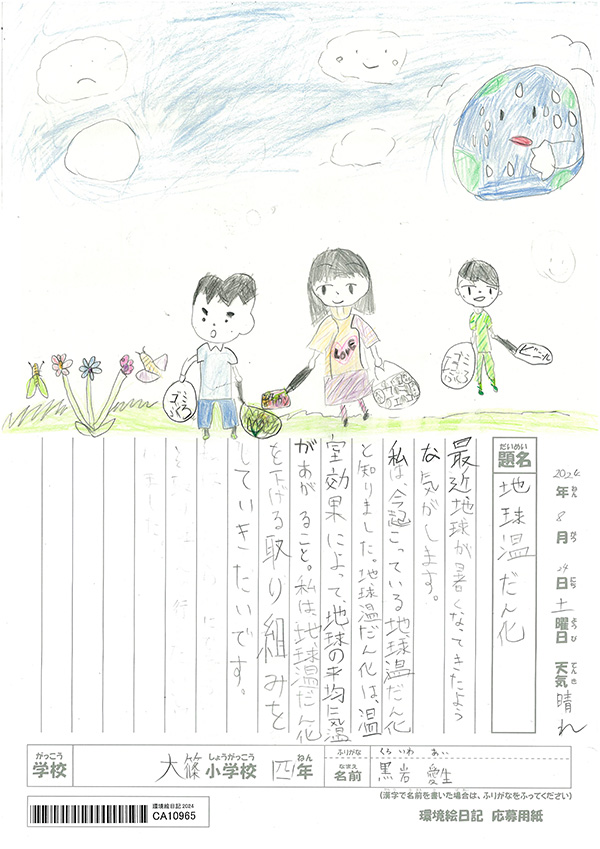 ゴミ
ふくろ
LOVE
ゴミ
ふくろ
ビニール
2024年 8月 24日 土曜日 天気 晴れ
ねん がつ にち ようび てんき
だいめい
題名
地球温だん化
最近地球が暑くなってきたよう
な気がします。
私は、今起こっている地球温だん化
と知りました。地球温だん化は、温
室効果によって、地球の平均気温
があがること。私は、地球温だん化
を下げる取り組みを
していきたいです。
がっこう
学校
大篠 小学校 四年
しょうがっこう ねん
ふりがな
くろ いわ あい
なまえ
名前
黒岩 愛生
(漢字で名前を書いた場合は、ふりがなをふってください)
環境絵日記2024
CA10965
環境絵日記 応募用紙